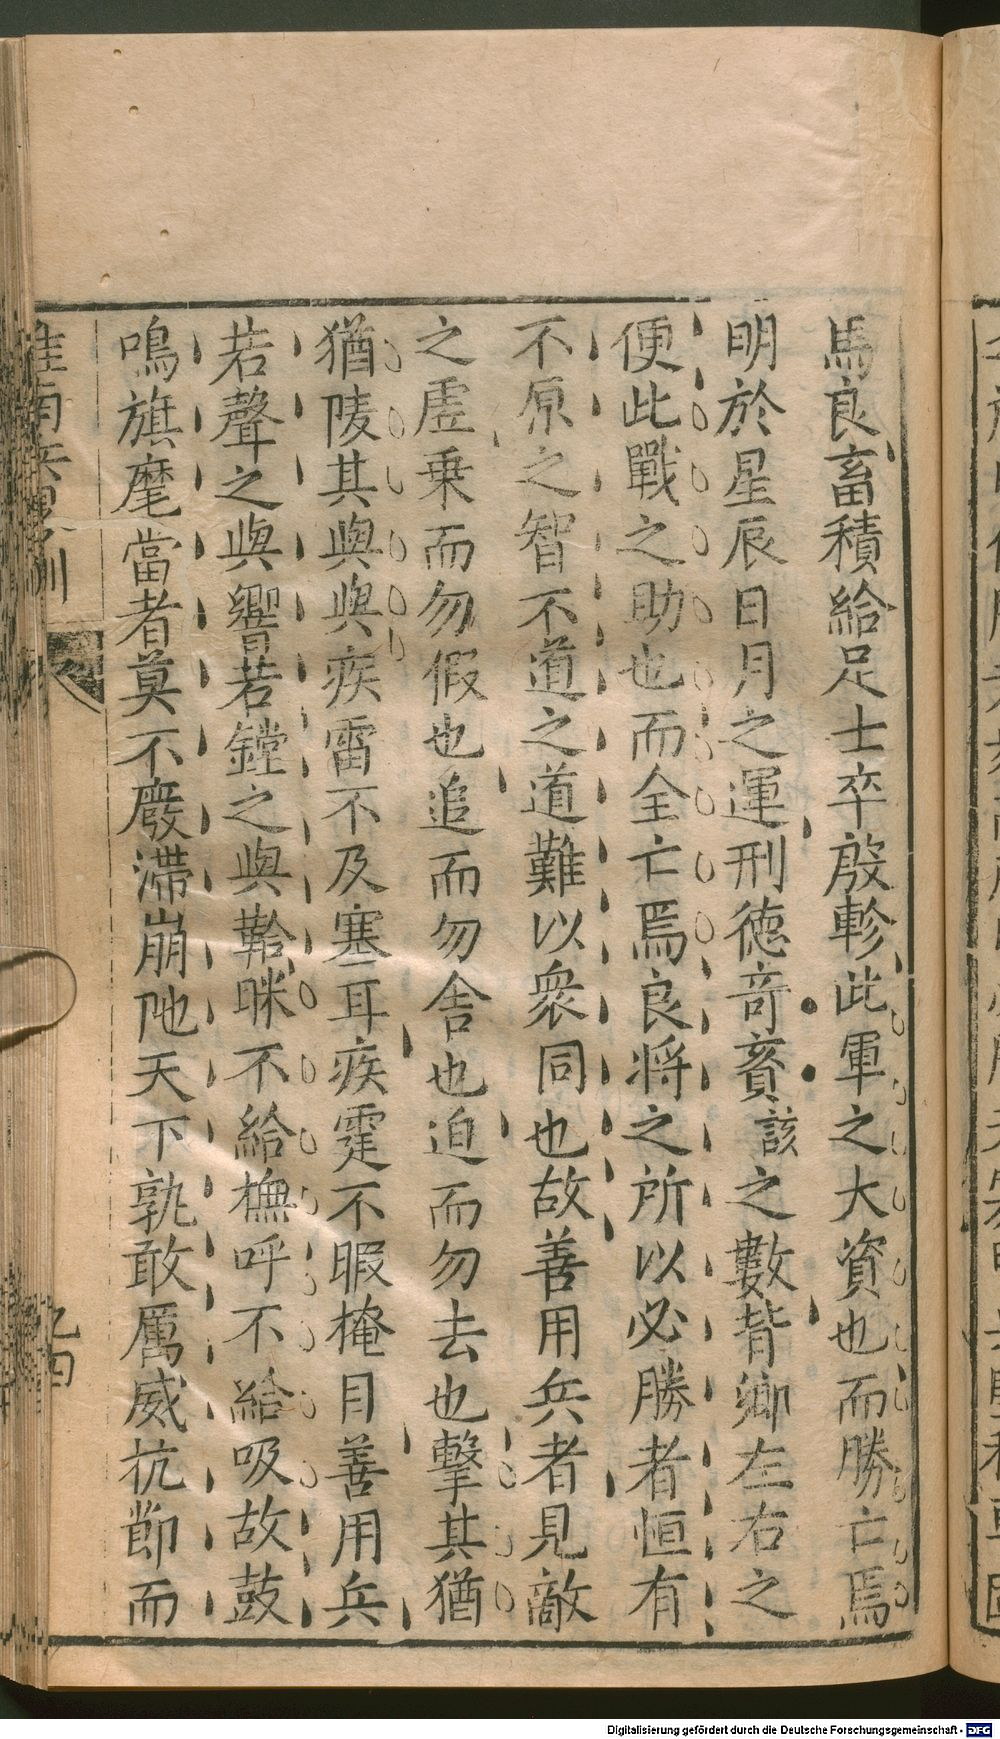 馬良畜積給足士卒殷軫此軍之大資也而勝亡焉
明於星辰日月之運刑德奇賌該之數背鄉左右之
便此戰之助也而全亡焉良將之所以必勝者恒有
不原之智不道之道難以衆同也故善用兵者見敵
之虛乗而勿假也追而勿舍也迫而勿去也擊其猶
猶陵其與與疾雷不及塞耳疾霆不暇掩目善用兵
若聲之與響若鏜之與鞈眯不給橅呼不給吸故鼓
鳴旗麾當者莫不廢滯崩阤天下孰敢厲威抗節而
淮南兵畧訓
九四
Digitalisierung gefördert durch die Deutsche Forschungsgemeinschaft - DFG